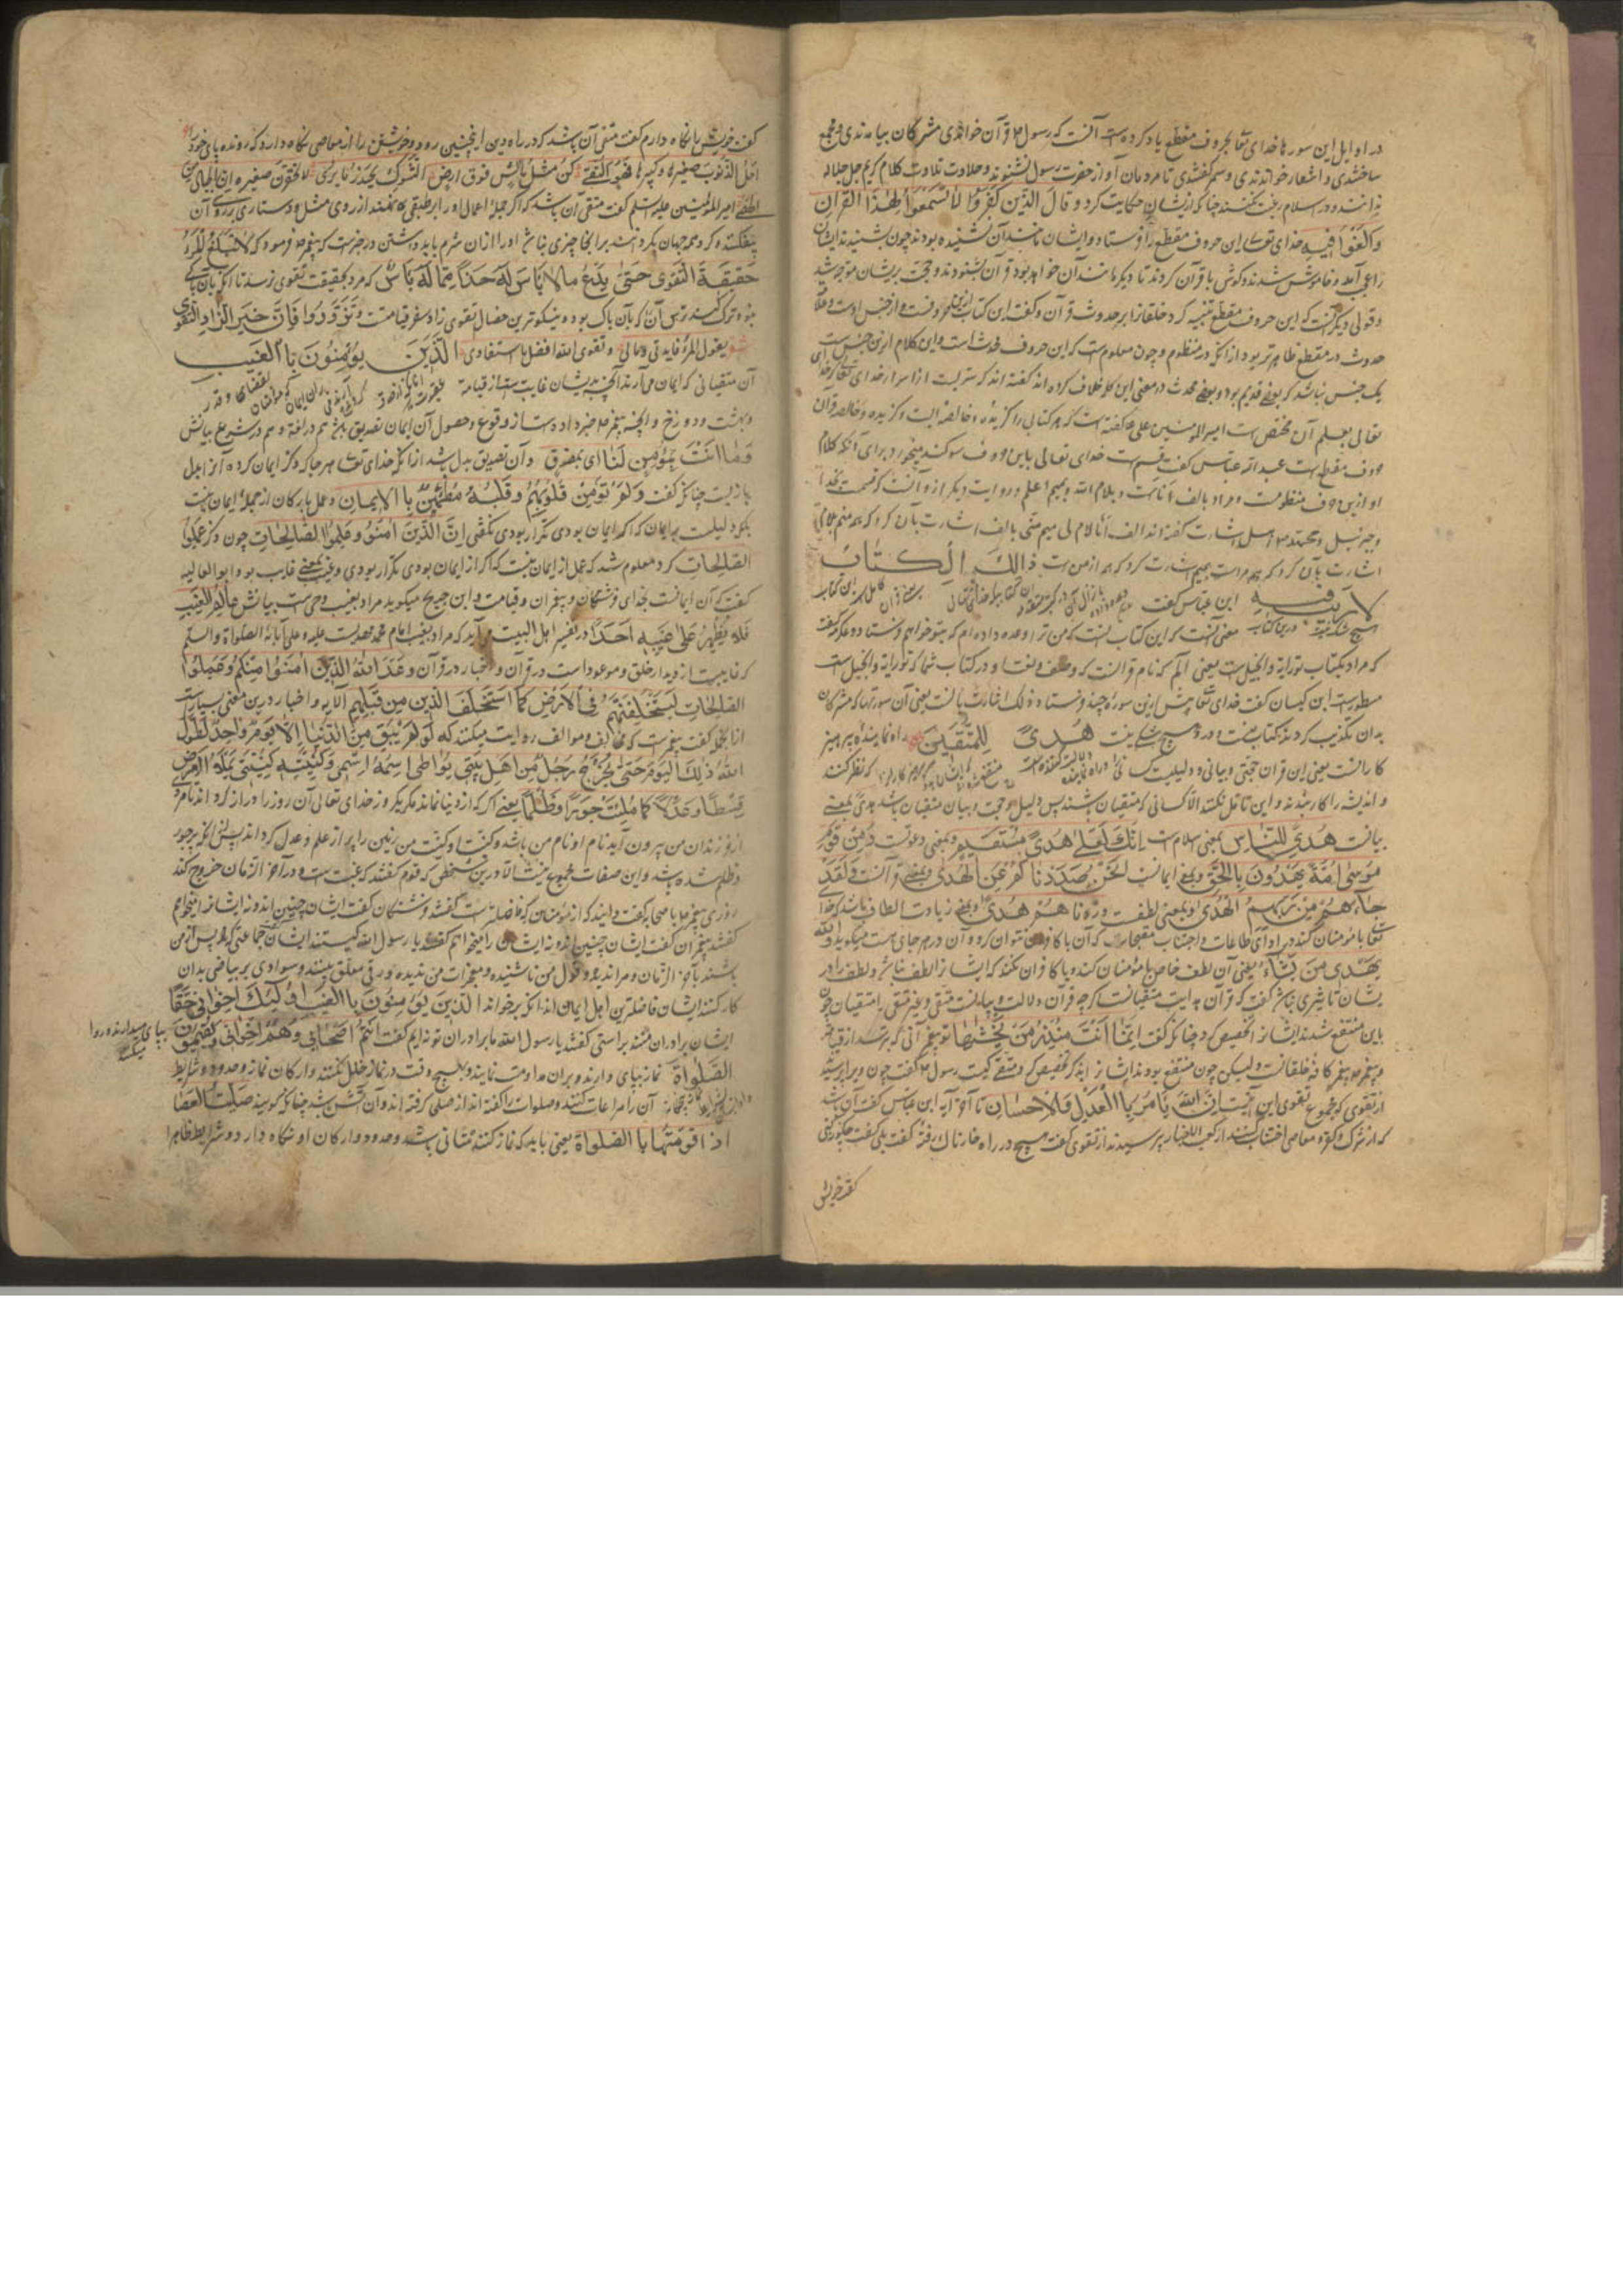 در اوایل این سورها خدای تعا بحروف مقطع یاد کرده است آنست که رسول ع قرآن خواندی مشرکان بیامدندی و جمع
ساختندی و اشعار خواندندی و سم گفتندی تا مردمان آواز حضرت رسول نشنوند و حلاوت تلاوت کلام کریم جل جلاله
ندانند و در اسلام رغبت نکنند چنانکه ازیشان حکایت کرد و قال الذین کفروا لا تسمعوا لهذا القران
والغوا فیه خدای تعالی این حروف مقطع را فرستاد و ایشان مانند آن نشنیده بودند چون بشنیدند ایشان
را عجب آمد و خاموش شدند و گوش با قرآن کردند تا دیگر مانند آن خواهد بود قرآن بشنودند و حجت بریشان متوجه شد
و قولی دیگر آنست که این حروف مقطع تنبیه کرد خلقانرا بر حدوث قرآن و گفت این کتاب ازین حروفست و از جنس
حدوث در مقطع ظاهرتر بود از آنکه در منظوم و چون معلومست که این حروف محدث است و این کلام ازین جنس است
یک جنس نباشد که بعضی قدیم بود و بعضی محدث در معنی این کلمه خلاف کرده اند گفته اند که سریست از اسرار خدای تعالی که خدای
تعالی بعلم آن مختص است امیر المومنین علی ع گفته است که هر کتابی را گزیده و خالصه ایست و گزیده و خالصه قرآن
حروف مقطع است عبد الله عباس گفت قسم است خدای تعالی باین حروف سوگند میخورد برای آنکه کلام
او ازین حروف منظومست و مراد بالف اناست و بلام الله و بمیم اعلم و روایت دیگر ازو آنست که قسمست بخدا
و جبرئیل و محمد ص و اهل اشارت گفته اند الف انا لام لی میم منی بالف اشارت بآن کرد که همه منم بلام
اشارت بآن کرد که همه مراست بمیم اشارت کرد که همه از من است ذالک الکتاب
لا ریب فیه ابن عباس گفت
هیچ شک نیست درین کتاب معنی آنست که این کتاب آنست که من ترا وعده داده ام که بتو خواهم فرستاد و عکرمه گفت
که مراد بکتاب توراة و انجیل است یعنی الم که نام قرآنست که وصف و نعت او در کتاب شما که توراة و انجیل است
مسطور است ابن کیسان گفت خدای تعا پیش ازین سوره چند فرستاد ذلک اشارت بآنست یعنی آن سورتها که مشرکان
بدان تکذیب کردند کتاب منست و درو هیچ شکی نیست هدی للمتقین راه نماینده پرهیز
کارانست یعنی این قرآن حجتی و بیانی و دلیلیست
و اندیشه را کار بندند و این تامل نکنند الا کسانی که متقیان باشند پس دلیل و حجت و بیان متقیان باشد هدی بمعنی
بیانست هدی للناس بمعنی اسلام است انک لعلی هدی مستقیم و بمعنی دعوتست و من قوم
موسی امة یهدون بالحق و بمعنی ایمانست انحن صددناکم عن الهدی و بمعنی قرآنست و لقد
جاءهم من ربهم الهدی و بمعنی لطفست و زدناهم هدی و بمعنی زیادت الطاف باشد که خدا
تعا با مومنان کند در ادای طاعات و اجتناب مقبحات که آن با کافران نتوان کرد و آن در هر جای است میگوید والله
یهدی من یشاء یعنی آن لطف خاص با مومنان کند و با کافران نکند که ایشانرا لطف نباشد و لطف را در
یشان تاثیری نباشد گفت که قرآن هدایت متقیانست اگرچه قرآن دلالت و بیانست متقی و غیر متقی را متقیان چون
باین منتفع شدند ایشانرا تخصیص کرد چنانکه گفت انما انت منذر من یخشیها تو پیغمبر آنی که بترسد از قیامت
و پیغمبر ص پیغمبر کافه خلقانست ولیکن چون منتفع بودند ایشانرا بذکر تخصیص کرد و متقی کیست رسول ع گفت چون ویرا پرسیدند
از تقوی که مجموع تقوی این آیتست ان الله یامر بالعدل والاحسان تا آخر آیه ابن عباس گفت آن باشد
که از شرک و کفر و معاصی اجتناب کند از کعب الاخبار پرسیدند از تقوی گفت هیچ در راه خارناک رفته گفت بلی گفت چگونه کردی
گفت خویش
گفت خویش را نگاه دارم گفت متقی آن باشد که در راه دین اینچنین رود و خویشتن را از معاصی نگاه دارد که رونده پای خود را
خل الذنوب صغیرها و کبیرها فهو التقی کن مثل ماش فوق ارض الشوک یحذر ما یری لا تحقرن صغیرة ان الجبال من
الحصی امیر المومنین علیه السلم گفت متقی آن باشد که اگر جمله اعمال او را بر طبقی نهند از روی مثل و دستاری بر روی آن
نیفکنده گرد همه جهان بگردانند بر آنجا چیزی نباشد او را از آن شرم باید داشتن در خبرست که پیغمبر ص فرمود که لا یبلغ المرء
حقیقة التقوی حتی یدع ما لا باس له حذرا مما له باس که مرد بحقیقت تقوی نرسد تا آنکه بآن باکی
نبود ترک کند ترس آن که بآن باک بود و نیکوترین خصال تقوی زاد سفر قیامتست و تزودوا فان خیر الزاد التقوی
شعر یقول المرء فایدتی و مالی و تقوی الله افضل ما استفادی الذین یومنون بالغیب
آن متقیانی که ایمان می آرند آنچه بدیشان غایب ست از قیامة
و بهشت و دوزخ و آنچه پیغمبر ص خبر داده ست از وقوع و حصول آن ایمان تصدیق باشد هم در لغة و هم در شرع بیانش
و ما انت بمومن لنا ای بمصدق و آن تصدیق بدل باشد از آنکه خدای تعا هر جا که ذکر ایمان کرده آنرا بدل
باز بست چنانکه گفت و لم تومن قلوبهم و قلبه مطمئن بالایمان و عمل بارکان از جمله ایمان نیست
بلکه دلیلست بر ایمان که اگر ایمان بودی تکرار بودی گفتی ان الذین امنوا و عملوا الصالحات چون ذکر عملوا
الصالحات کرد معلوم شد که عمل از ایمان نیست که اگر از ایمان بودی تکرار بودی و غیب بمعنی غایب بود ابو العالیه
گفت که آن ایمانست بخدای و فرشتگان و پیغمبران و قیامت و ابن جریح میگوید مراد بغیب وحی ست بیانش عالم الغیب
فلا یظهر علی غیبه احدا در تفسیر اهل البیت می آید که مراد بغیب امام محمد مهدیست علیه و علی آبائه الصلواة والسلم
که غایبست از دیدار خلق و موعود است در قرآن و اخبار در قرآن وعد الله الذین امنوا منکم و عملوا
الصالحات لیستخلفنهم فی الارض کما استخلف الذین من قبلهم الآیه و اخبار درین معنی بسیارست
لو لم یبق من الدنیا الا یوم واحد لطول
الله ذلک الیوم حتی یخرج رجل من اهل بیتی یواطی اسمه اسمی و کنیته کنیتی یملا الارض
قسطا و عدلا کما ملئت جورا و ظلما یعنی اگر که از دنیا نماند مگر یک روز خدای تعالی آن روز را دراز کرداند تا مرد
از فرزندان من بیرون آید نام او نام من باشد و کنیت او کنیت من زمین را پر از علم و عدل کرداند پس از آنکه پر جور
و ظلم شده باشد و این صفات مجموع نیست الا درین شخص که قوم گفتند که غیبت است و در آخر الزمان خروج کند
روزی پیغمبر ص با صحابه گفت دانید که از مومنان که فاضلتر است گفتند فرشتگان گفت ایشان چنین اند و نه ایشانرا میخواهم
گفتند پیغمبران گفت ایشان چنین اند و نه ایشان را میخواهم گفتند یا رسول الله کیستند ایشان گفت جماعتی که پس از من
باشند بآخر الزمان و مرا ندیده و قول من ناشنیده و معجزات من ندیده ورقی معلق بینند و سوادی بر بیاضی بدان
کار کنند ایشان فاضلترین اهل ایمان اند آنکه برخواند الذین یومنون بالغیب اولئک اخوانی حقا
ایشان برادران منند براستی گفتند یا رسول الله ما برادران تو نه ایم گفت انتم اصحابی و هم اخوانی و یقیمون
الصلواة نماز بپای دارند و بران مداومت نمایند و بهیچ وقت در نماز خلل نکنند و ارکان نماز و حدود و شرایط
آن را مراعات کنند و صلوات را گفته اند از صلی گرفته اند و آن آتش باشد چنانکه گویند صلیت العصا
اذا قومتها بالصلواة یعنی باید که نماز کننده نشانی باشد و حدود و ارکان او نگاه دارد و شرایط ظاهرا